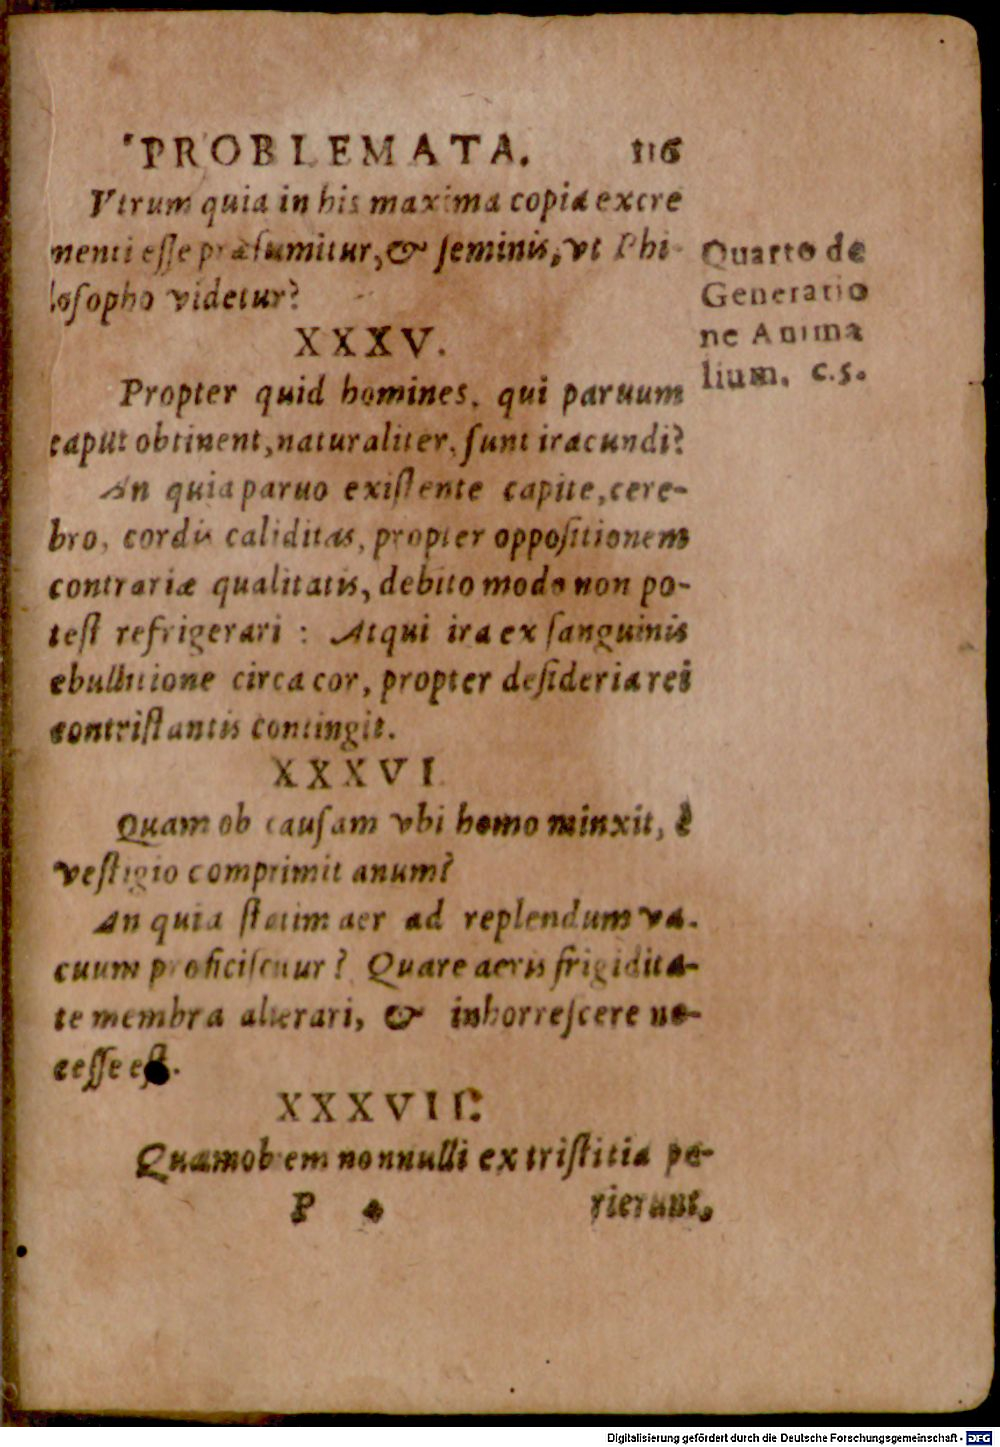 PROBLEMATA. 116
Vtrum quia in his maxima copia excre
menti eſſe præſumitur, & ſeminis, vt Phi-
loſopho videtur?
Quarto de
Generatio
ne Anima
lium. c.5.
XXXV.
Propter quid homines, qui paruum
caput obtinent, naturaliter, ſunt iracundi?
An quia paruo exiſtente capite, cere-
bro, cordis caliditas, propter oppoſitionem
contrariæ qualitatis, debito modo non po-
teſt refrigerari : Atqui ira ex ſanguinis
ebullitione circa cor, propter deſideria rei
contriſtantis contingit.
XXXVI
Quam ob cauſam vbi homo minxit, è
veſtigio comprimit anum?
An quia ſtatim aer ad replendum va.
cuum proficiſcitur? Quare aeris frigidita-
te membra alterari, & inhorreſcere ne-
ceſſe eſt.
XXXVII.
Quamobrem nonnulli ex triſtitia pe-
P 4 rierunt,
Digitalisierung gefördert durch die Deutsche Forschungsgemeinschaft - DFG